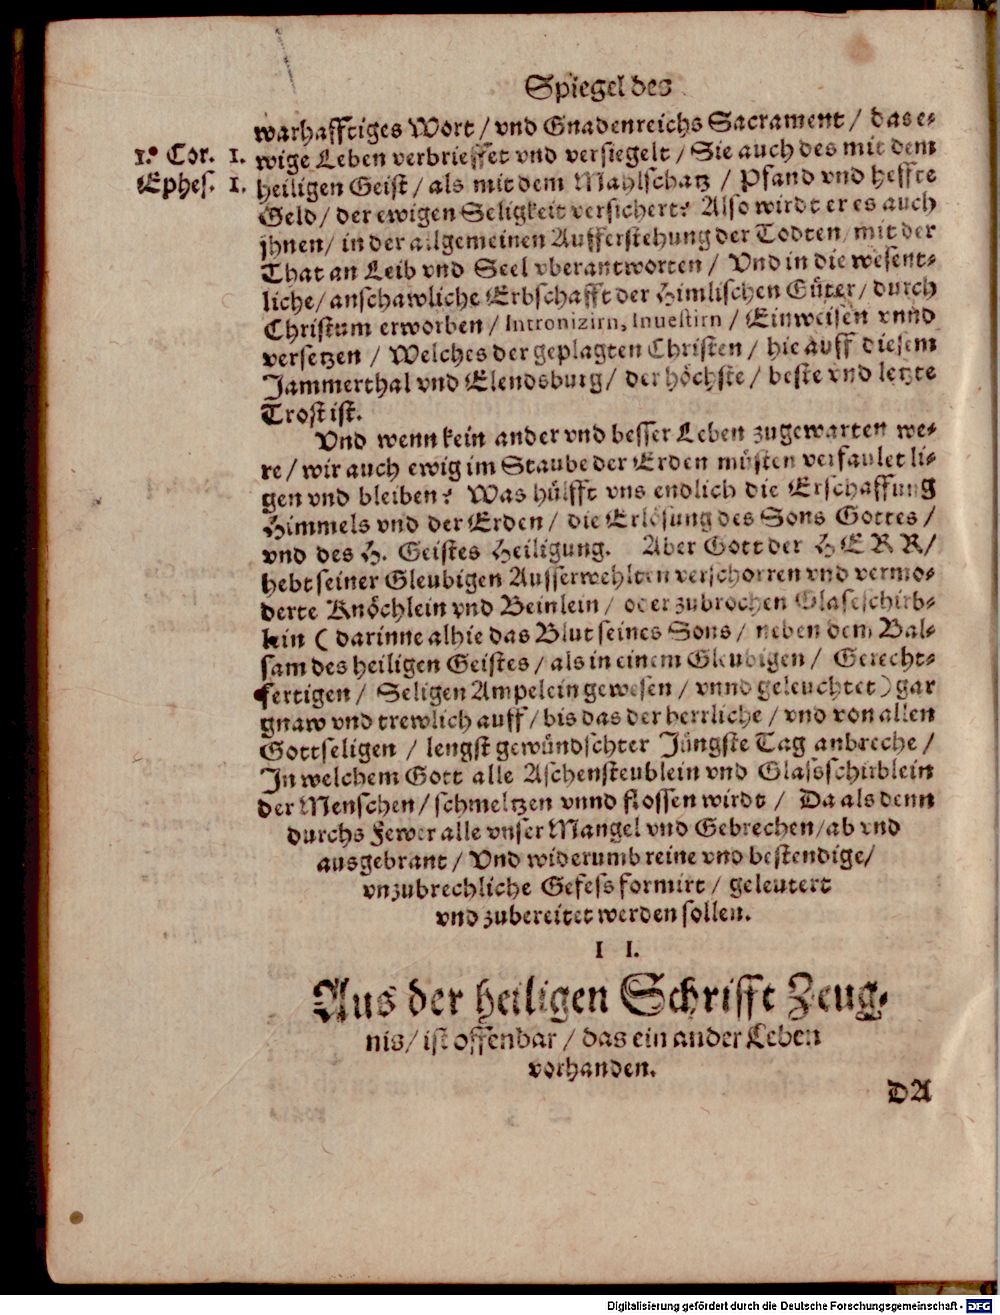 Spiegel des
warhafftiges Wort / vnd Gnadenreichs Sacrament / das e-
1. Cor. 1. wige Leben verbrieffet vnd versiegelt / Sie auch des mit dem
Ephes. 1. heiligen Geist / als mit dem Mahlschatz / Pfand vnd heffte
Geld / der ewigen Seligkeit versichert? Also wirdt er es auch
jhnen / in der allgemeinen Aufferstehung der Todten / mit der
That an Leib vnd Seel vberantworten / Vnd in die wesent-
liche / anschawliche Erbschafft der Himlischen Güter / durch
Christum erworben / Intronizirn, Inuestirn / Einweisen vnnd
versetzen / Welches der geplagten Christen / hie auff diesem
Jammerthal vnd Elendsburg / der höchste / beste vnd letzte
Trost ist.
Vnd wenn kein ander vnd besser Leben zugewarten we-
re / wir auch ewig im Staube der Erden müsten verfaulet li-
gen vnd bleiben? Was hülfft vns endlich die Erschaffung
Himmels vnd der Erden / die Erlösung des Sons Gottes /
vnd des H. Geistes Heiligung. Aber Gott der HERR /
hebt seiner Gleubigen Ausserwehlten verschorren vnd vermo-
derte Knöchlein vnd Beinlein / oder zubrochen Glaseschirb-
lein ( darinne alhie das Blut seines Sons / neben dem Bal-
sam des heiligen Geistes / als in einem Gleubigen / Gerecht-
fertigen / Seligen Ampelein gewesen / vnnd geleuchtet ) gar
gnaw vnd trewlich auff / bis das der herrliche / vnd von allen
Gottseligen / lengst gewündschter Jüngste Tag anbreche /
In welchem Gott alle Aschensteublein vnd Glassschirblein
der Menschen / schmeltzen vnnd flossen wirdt / Da als denn
durchs Fewer alle vnser Mangel vnd Gebrechen / ab vnd
ausgebrant / Vnd widerumb reine vnd bestendige /
vnzubrechliche Gefess formirt / geleutert
vnd zubereitet werden sollen.
I I.
Aus der heiligen Schrifft Zeug-
nis / ist offenbar / das ein ander Leben
vorhanden.
DA
Digitalisierung gefördert durch die Deutsche Forschungsgemeinschaft - DFG